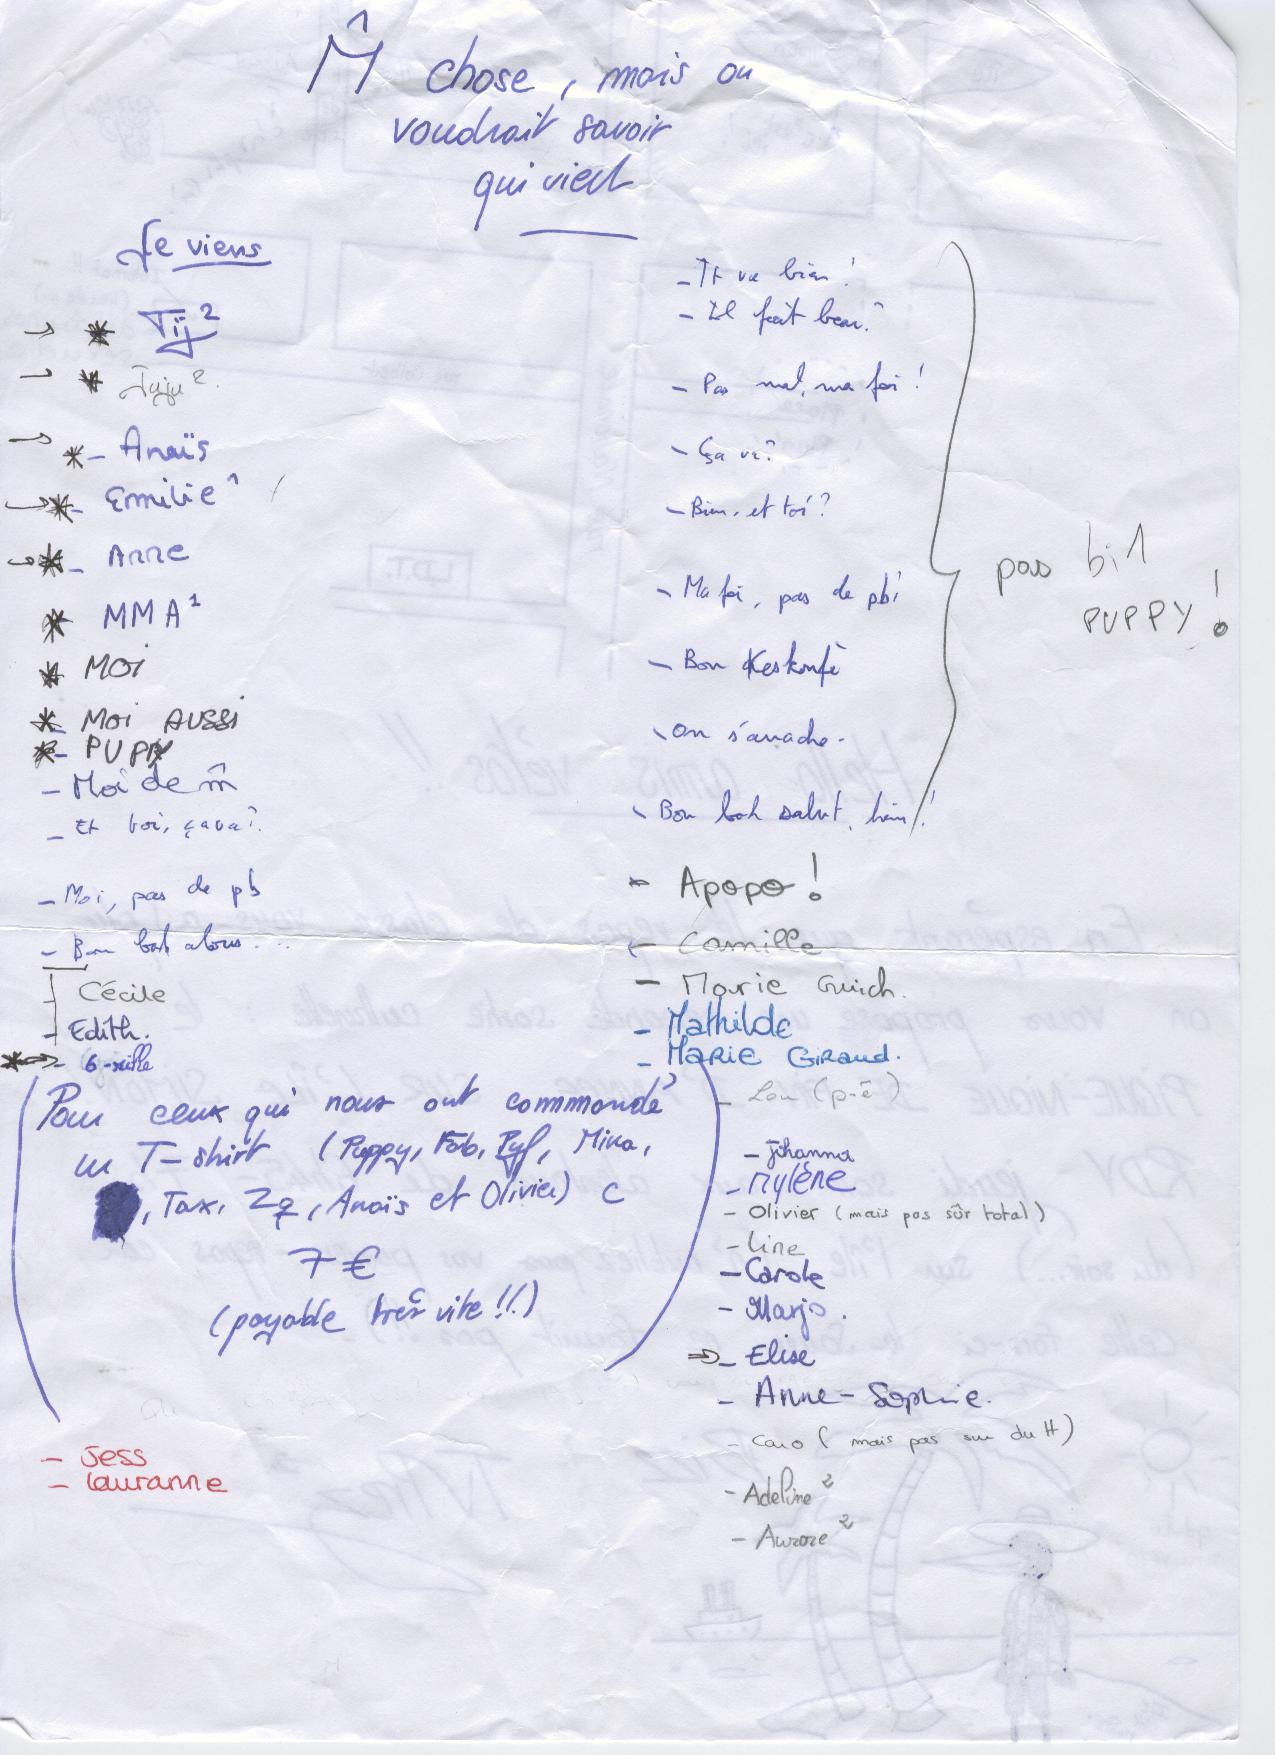 M̂ chose, mais on
voudrait savoir
qui vient
Je viens
Tij²
Juju²
Anaïs
Emilie¹
Anne
MMA¹
MOI
MOI AUSSI
PUPPY
- Moi de m̂
- Et toi, ça va?
- Moi, pas de pb
- Bon bah alors...
Cécile
- Edith.
Pour ceux qui nous ont commandé
un T-shirt (Puppy, Fab, Pyf, Mina,
, Tax, Zq, Anaïs et Olivier) C
7 €
(payable très vite !!)
- Jess
- Lauranne
- Tt va bien!
- Il fait beau?
- Pas mal, ma foi !
- Ça va?
- Bien, et toi?
- Ma foi, pas de pb!
- Bon Keskonfè
- On s'arrache.
- Bon bah salut, hein!
pas bi1
PUPPY !
- Apopo !
- Camille
- Marie Guich.
- Mathilde
- MARIE GIRAUD.
- Lou (p-ê)
- Johanna
- Mylène
- Olivier (mais pas sûr total)
- Line
- Carole
- Marjo.
- Elise
- Anne-Sophie.
- Caro (mais pas sur du tt)
- Adeline²
- Aurore²
L.D.T.